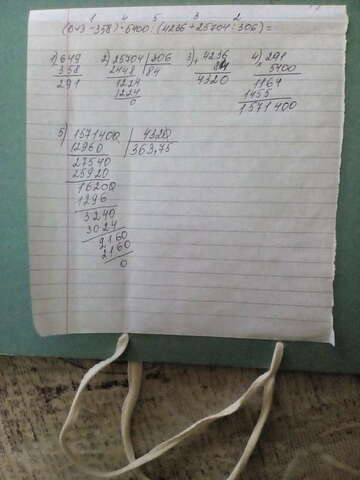 1 4 5 3 2
(649-358)·5400:(4236+25704:306)=
1) 649
358
291
2) 25704 306
2448 84
1224
1224
0
3) + 4236
84
4320
4) × 291
5400
1164
1455
1571400
5) 1571400 4320
12960 363,75
27540
25920
16200
1296
3240
3024
2160
2160
0